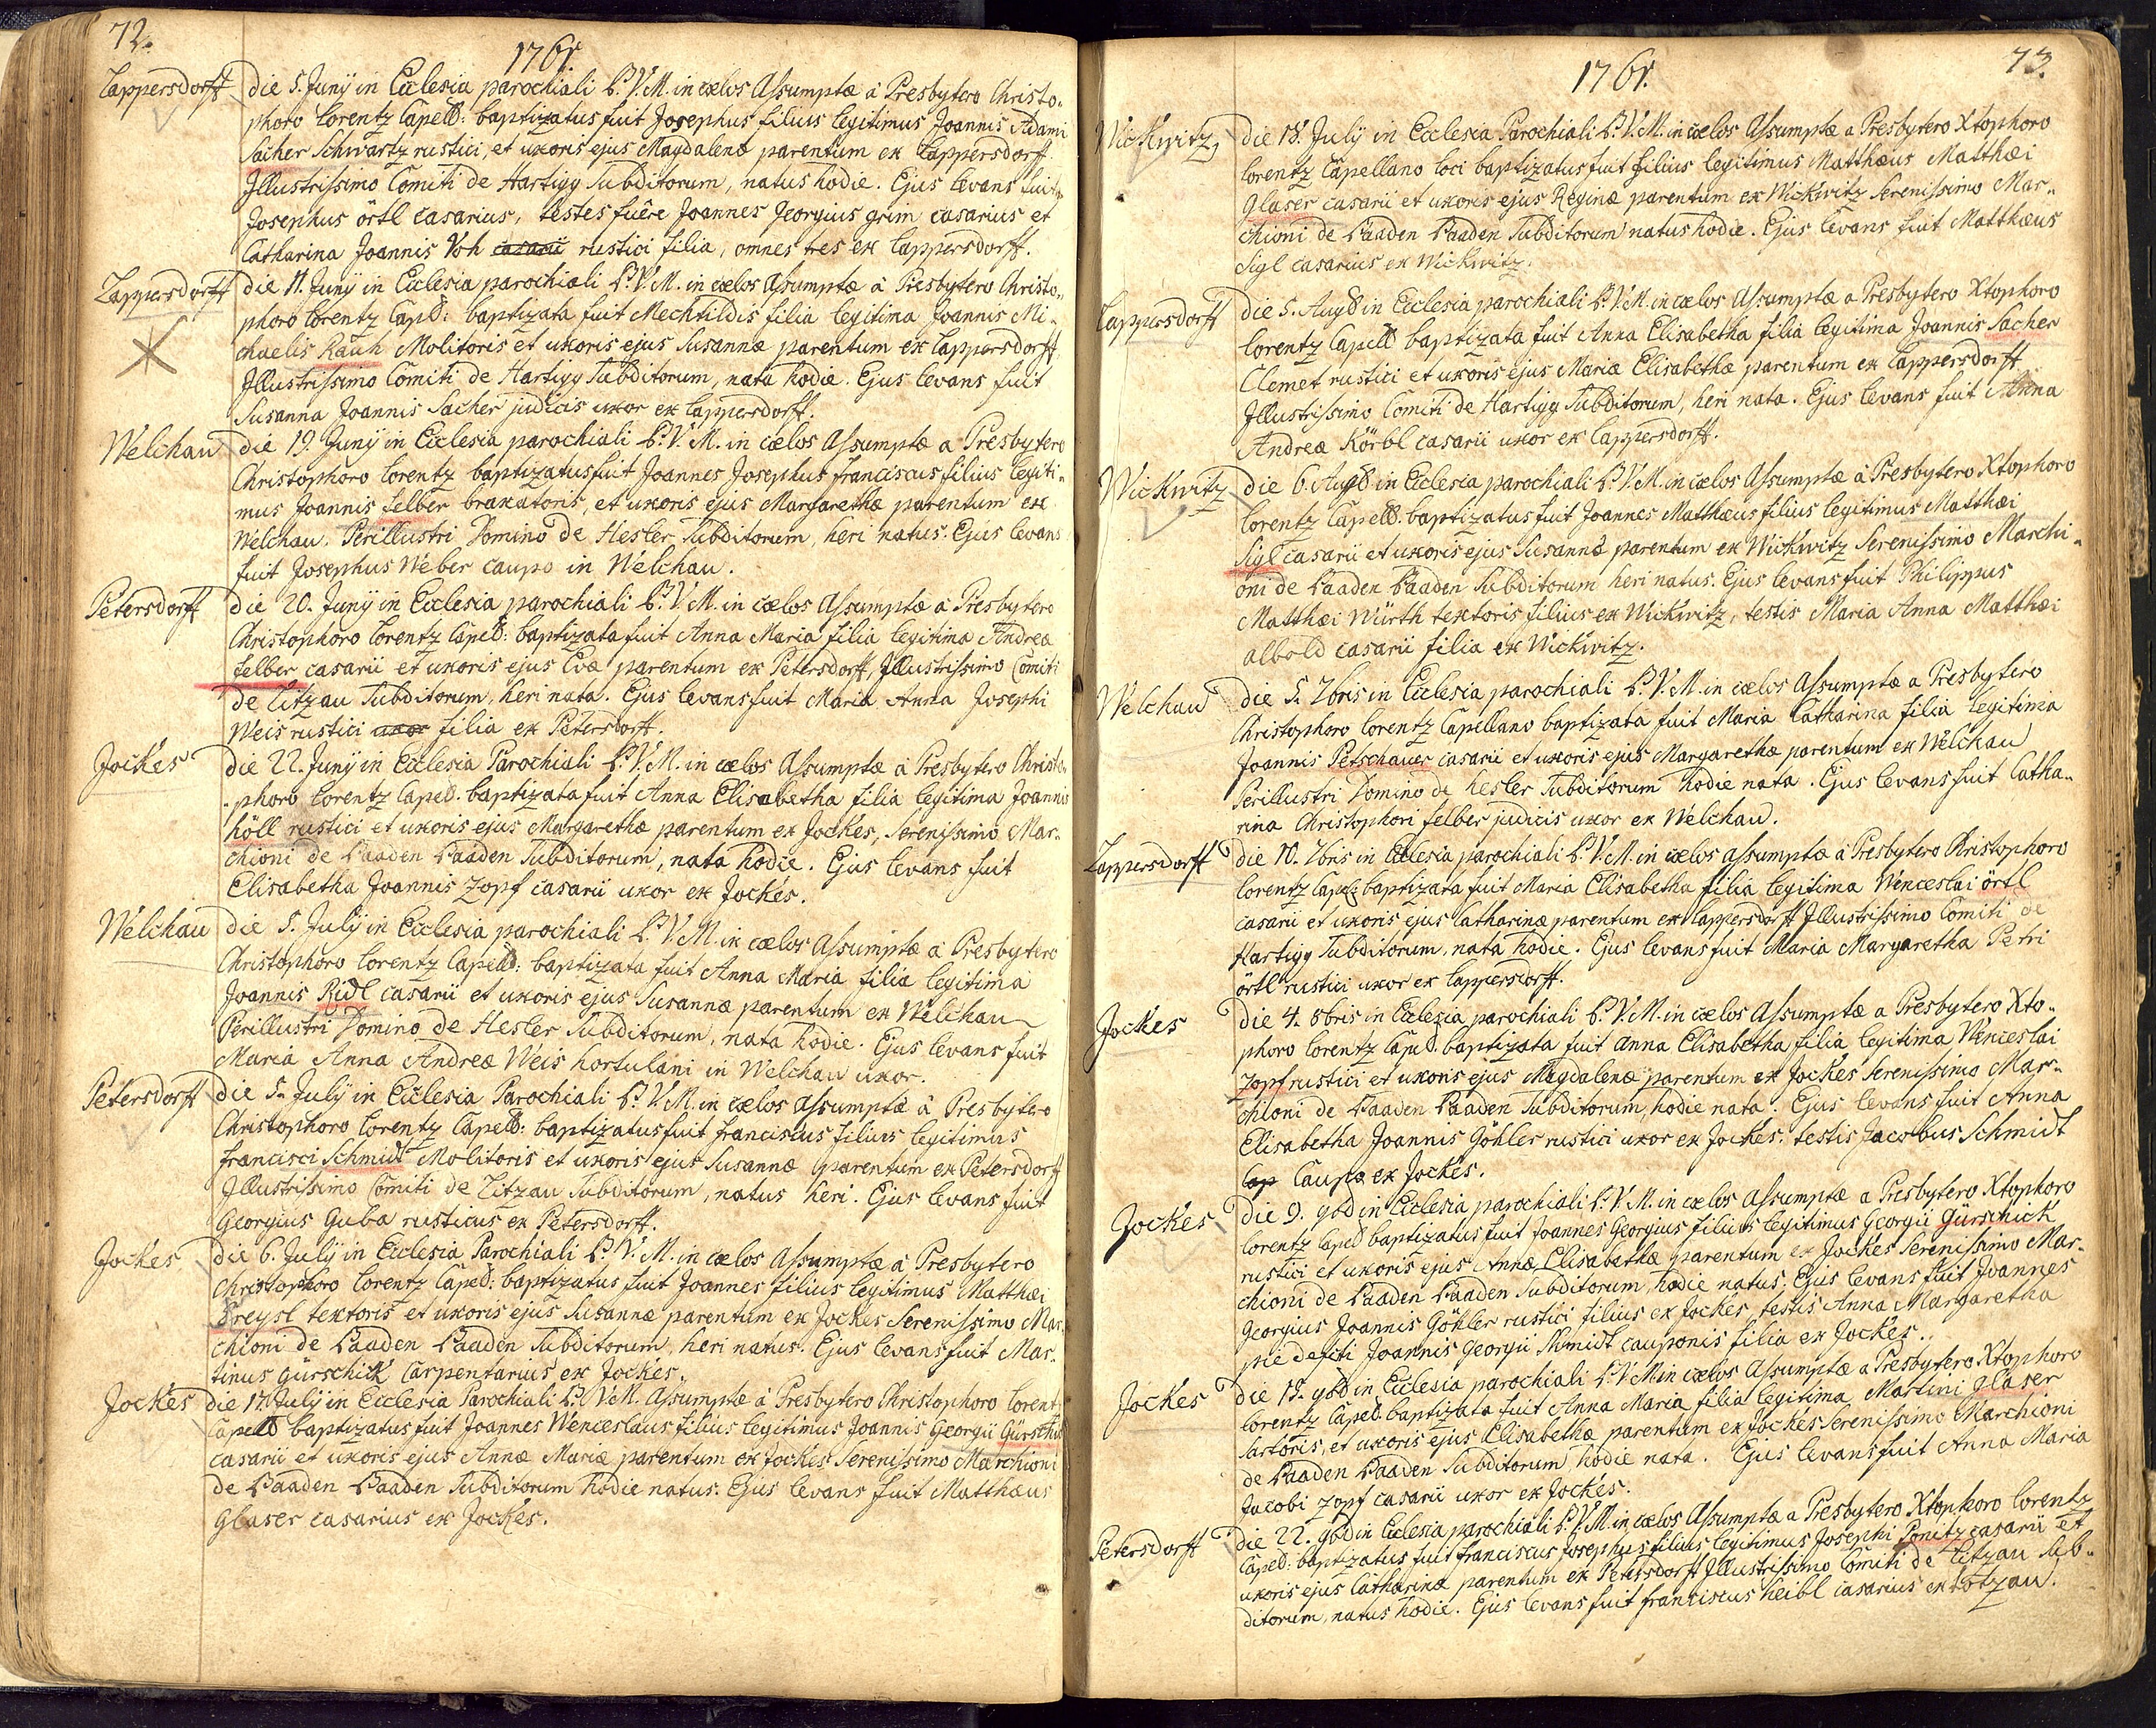 72.
1761.
Lappersdorff die 5. Junÿ in Ecclesia parochiali B. V. M. in cœlos Assumptæ à Presbytero Christo„
phoro Lorentz Capell: baptizatus fuit Josephus filius legitimus Joannis Adami
Sacher Schwartz rustici, et uxoris ejus Magdalenæ parentum ex Lappersdorff
Illustrissimo Comiti de Hartigg Subditorum, natus hodie. Ejus levans fuit
Josephus örtl casarius, testes fuêre Joannes Georgius grim casarius et
Catharina Joannis Voh casarii rustici filia, omnes tres ex Lappersdorff.
Lappersdorff die 11. Junÿ in Ecclesia parochiali B. V. M. in cœlos Assumptæ à Presbytero Christo„
phoro Lorentz Capl: baptizata fuit Mechtildis filia legitima Joannis Mi„
chaelis Rauh Molitoris et uxoris ejus Susannæ parentum ex Lappersdorff
Illustrissimo Comiti de Hartigg Subditorum, nata hodie. Ejus levans fuit
Susanna Joannis Sacher judicis uxor ex Lappersdorff.
Welchau die 19. Junÿ in Ecclesia parochiali B. V. M. in cœlos Assumptæ a Presbytero
Christophoro Lorentz baptizatus fuit Joannes Josephus franciscus filius legiti„
mus Joannis felber braxatoris, et uxoris ejus Margarethæ parentum ex
Welchau. Perillustri Domino de Hesler Subditorum, heri natus. Ejus levans
fuit Josephus Weber caupo in Welchau.
Petersdorff die 20. Junÿ in Ecclesia parochiali B. V. M. in cœlos Assumptæ à Presbytero
Christophoro Lorentz Capell: baptizata fuit Anna Maria filia legitima Andreæ
felber casarii et uxoris ejus Evæ parentum ex Petersdorff, Illustrissimo Comiti
de Citzau Subditorum, heri nata. Ejus levans fuit Maria Anna Josephi
Weis rustici uxor filia ex Petersdorff.
Jockes die 22. Junÿ in Ecclesia Parochiali B. V. M. in cœlos Assumptæ à Presbytero Christo„
phoro Lorentz Capell. baptizata fuit Anna Elisabetha filia legitima Joannis
höll rustici et uxoris ejus Margarethæ parentum ex Jockes, Serenissimo Mar„
chioni de Baaden Baaden Subditorum, nata hodie. Ejus levans fuit
Elisabetha Joannis Zopf casarii uxor ex Jockes.
Welchau die 5. Julÿ in Ecclesia parochiali B. V. M. in cœlos Assumptæ à Presbytero
Christophoro Lorentz Capell: baptizata fuit Anna Maria filia legitima
Joannis Ridl casarii et uxoris ejus Susannæ parentum ex Welchau
Perillustri Domino de Hesler Subditorum, nata hodie. Ejus levans fuit
Maria Anna Andreæ Weis hortulani in Welchau uxor.
Petersdorff die 5. Julÿ in Ecclesia Parochiali B. V. M. in cœlos assumptæ à Presbytero
Christophoro Lorentz Capell: baptizatus fuit franciscus filius legitimus
francisci Schmidt Molitoris et uxoris ejus Susannæ parentum ex Petersdorff
Illustrissimo Comiti de Citzau Subditorum, natus heri. Ejus levans fuit
Georgius Guba rusticus ex Petersdorff.
Jockes die 6. Julÿ in Ecclesia Parochiali B. V. M. in cœlos Assumptæ à Presbytero
Christophoro Lorentz Capell: baptizatus fuit Joannes filius legitimus Matthæi
Preysl textoris et uxoris ejus Susannæ parentum ex Jockes Serenissimo Mar„
chioni de Baaden Baaden Subditorum, heri natus. Ejus levans fuit Mar„
tinus Gürschick Carpentarius ex Jockes.
Jockes die 17. Julÿ in Ecclesia Parochiali B. V. M. Assumptæ à Presbytero Christophoro Lorentz
Capell baptizatus fuit Joannes Wenceslaus filius legitimus Joannis Georgii Gürschick
casarii et uxoris ejus Annæ Mariæ parentum ex Jockes Serenissimo Marchioni
de Baaden Baaden Subditorum hodie natus. Ejus levans fuit Matthæus
Glaser casarius ex Jockes.
73.
1761.
Wickwitz die 18. Julÿ in Ecclesia Parochiali B. V. M. in cœlos Assumptæ a Presbytero Xtophoro
Lorentz Capellano loci baptizatus fuit filius legitimus Matthæus Matthæi
Glaser casarii et uxoris ejus Reginæ parentum ex Wickwitz Serenissimo Mar„
chioni de Baaden Baaden Subditorum natus hodie. Ejus levans fuit Matthæus
Sigl casarius ex Wickwitz.
Lappersdorff die 5. Aug in Ecclesia parochiali B. V. M. in cœlos Assumptæ a Presbytero Xtophoro
Lorentz Capell baptizata fuit Anna Elisabetha filia legitima Joannis Sacher
Clemet rustici et uxoris ejus Mariæ Elisabethæ parentum ex Lappersdorff
Illustrissimo Comiti de Hartigg Subditorum, heri nata. Ejus levans fuit Anna
Andreæ Körbl casarii uxor ex Lappersdorff.
Wickwitz die 6. Aug in Ecclesia parochiali B. V. M. in cœlos Assumptæ à Presbytero Xtophoro
Lorentz Capell. baptizatus fuit Joannes Matthæus filius legitimus Matthæi
Sigl casarii et uxoris ejus Susannæ parentum ex Wickwitz Serenissimo Marchi„
oni de Baaden Baaden Subditorum heri natus. Ejus levans fuit Philippus
Matthæi Würth textoris filius ex Wickwitz, testis Maria Anna Matthæi
albold casarii filia ex Wickwitz.
Welchau die 5. 7bris in Ecclesia parochiali B. V. M. in cœlos Assumptæ a Presbytero
Christophoro Lorentz Capellano baptizata fuit Maria Catharina filia legitima
Joannis Petschauer casarii et uxoris ejus Margarethæ parentum ex Welchau
Perillustri Domino de hesler Subditorum hodie nata. Ejus levans fuit Catha„
rina Christophori felber judicis uxor ex Welchau.
Lappersdorff die 10. 7bris in Ecclesia parochiali B. V. M. in cœlos assumptæ à Presbytero Christophoro
Lorentz Capell: baptizata fuit Maria Elisabetha filia legitima Wenceslai örtl
casarii et uxoris ejus Catharinæ parentum ex Lappersdorff Illustrissimo Comiti de
Hartigg Subditorum, nata hodie. Ejus levans fuit Maria Margaretha Petri
örtl rustici uxor ex Lappersdorff.
Jockes die 4. 8bris in Ecclesia parochiali B. V. M. in cœlos Assumptæ a Presbytero Xto„
phoro Lorentz Capell. baptizata fuit anna Elisabetha filia legitima Wenceslai
Zopf rustici et uxoris ejus Magdalenæ parentum ex Jockes Serenissimo Mar„
chioni de Baaden Baaden Subditorum, hodie nata. Ejus levans fuit Anna
Elisabetha Joannis Göhler rustici uxor ex Jockes. testis Jacobus Schmidt
Cap Caupo ex Jockes.
Jockes die 9. 9b in Ecclesia parochiali B. V. M. in cœlos Assumptæ a Presbytero Xtophoro
Lorentz Capell baptizatus fuit Joannes Georgius filius legitimus Georgii Gürschick
rustici et uxoris ejus Annæ Elisabethæ parentum ex Jockes Serenissimo Mar„
chioni de Baaden Baaden Subditorum, hodie natus. Ejus levans fuit Joannes
Georgius Joannis Göhler rustici filius ex Jockes, testis Anna Margaretha
pie defuncti Joannis Georgii Schmidt cauponis filia ex Jockes.
Jockes die 15. 9b in Ecclesia parochiali B. V. M in cœlos Assumptæ a Presbytero Xtophoro
Lorentz Capell. baptizata fuit Anna Maria filia legitima Martini glaser
sartoris, et uxoris ejus Elisabethæ parentum ex Jockes Serenissimo Marchioni
de Baaden Baaden Subditorum, hodie nata. Ejus levans fuit Anna Maria
Jacobi Zopf casarii uxor ex Jockes.
Petersdorff die 22. 9b in Ecclesia parochiali B. V. M. in cœlos Assumptæ a Presbytero Xtophoro Lorentz
Capell: baptizatus fuit franciscus josephus filius legitimus Josephi Ponitz casarii et
uxoris ejus Catharinæ parentum ex Petersdorff Illustrissimo Comiti de Citzau Sub„
ditorum, natus hodie. Ejus levans fuit franciscus heibl casarius ex Totzau.